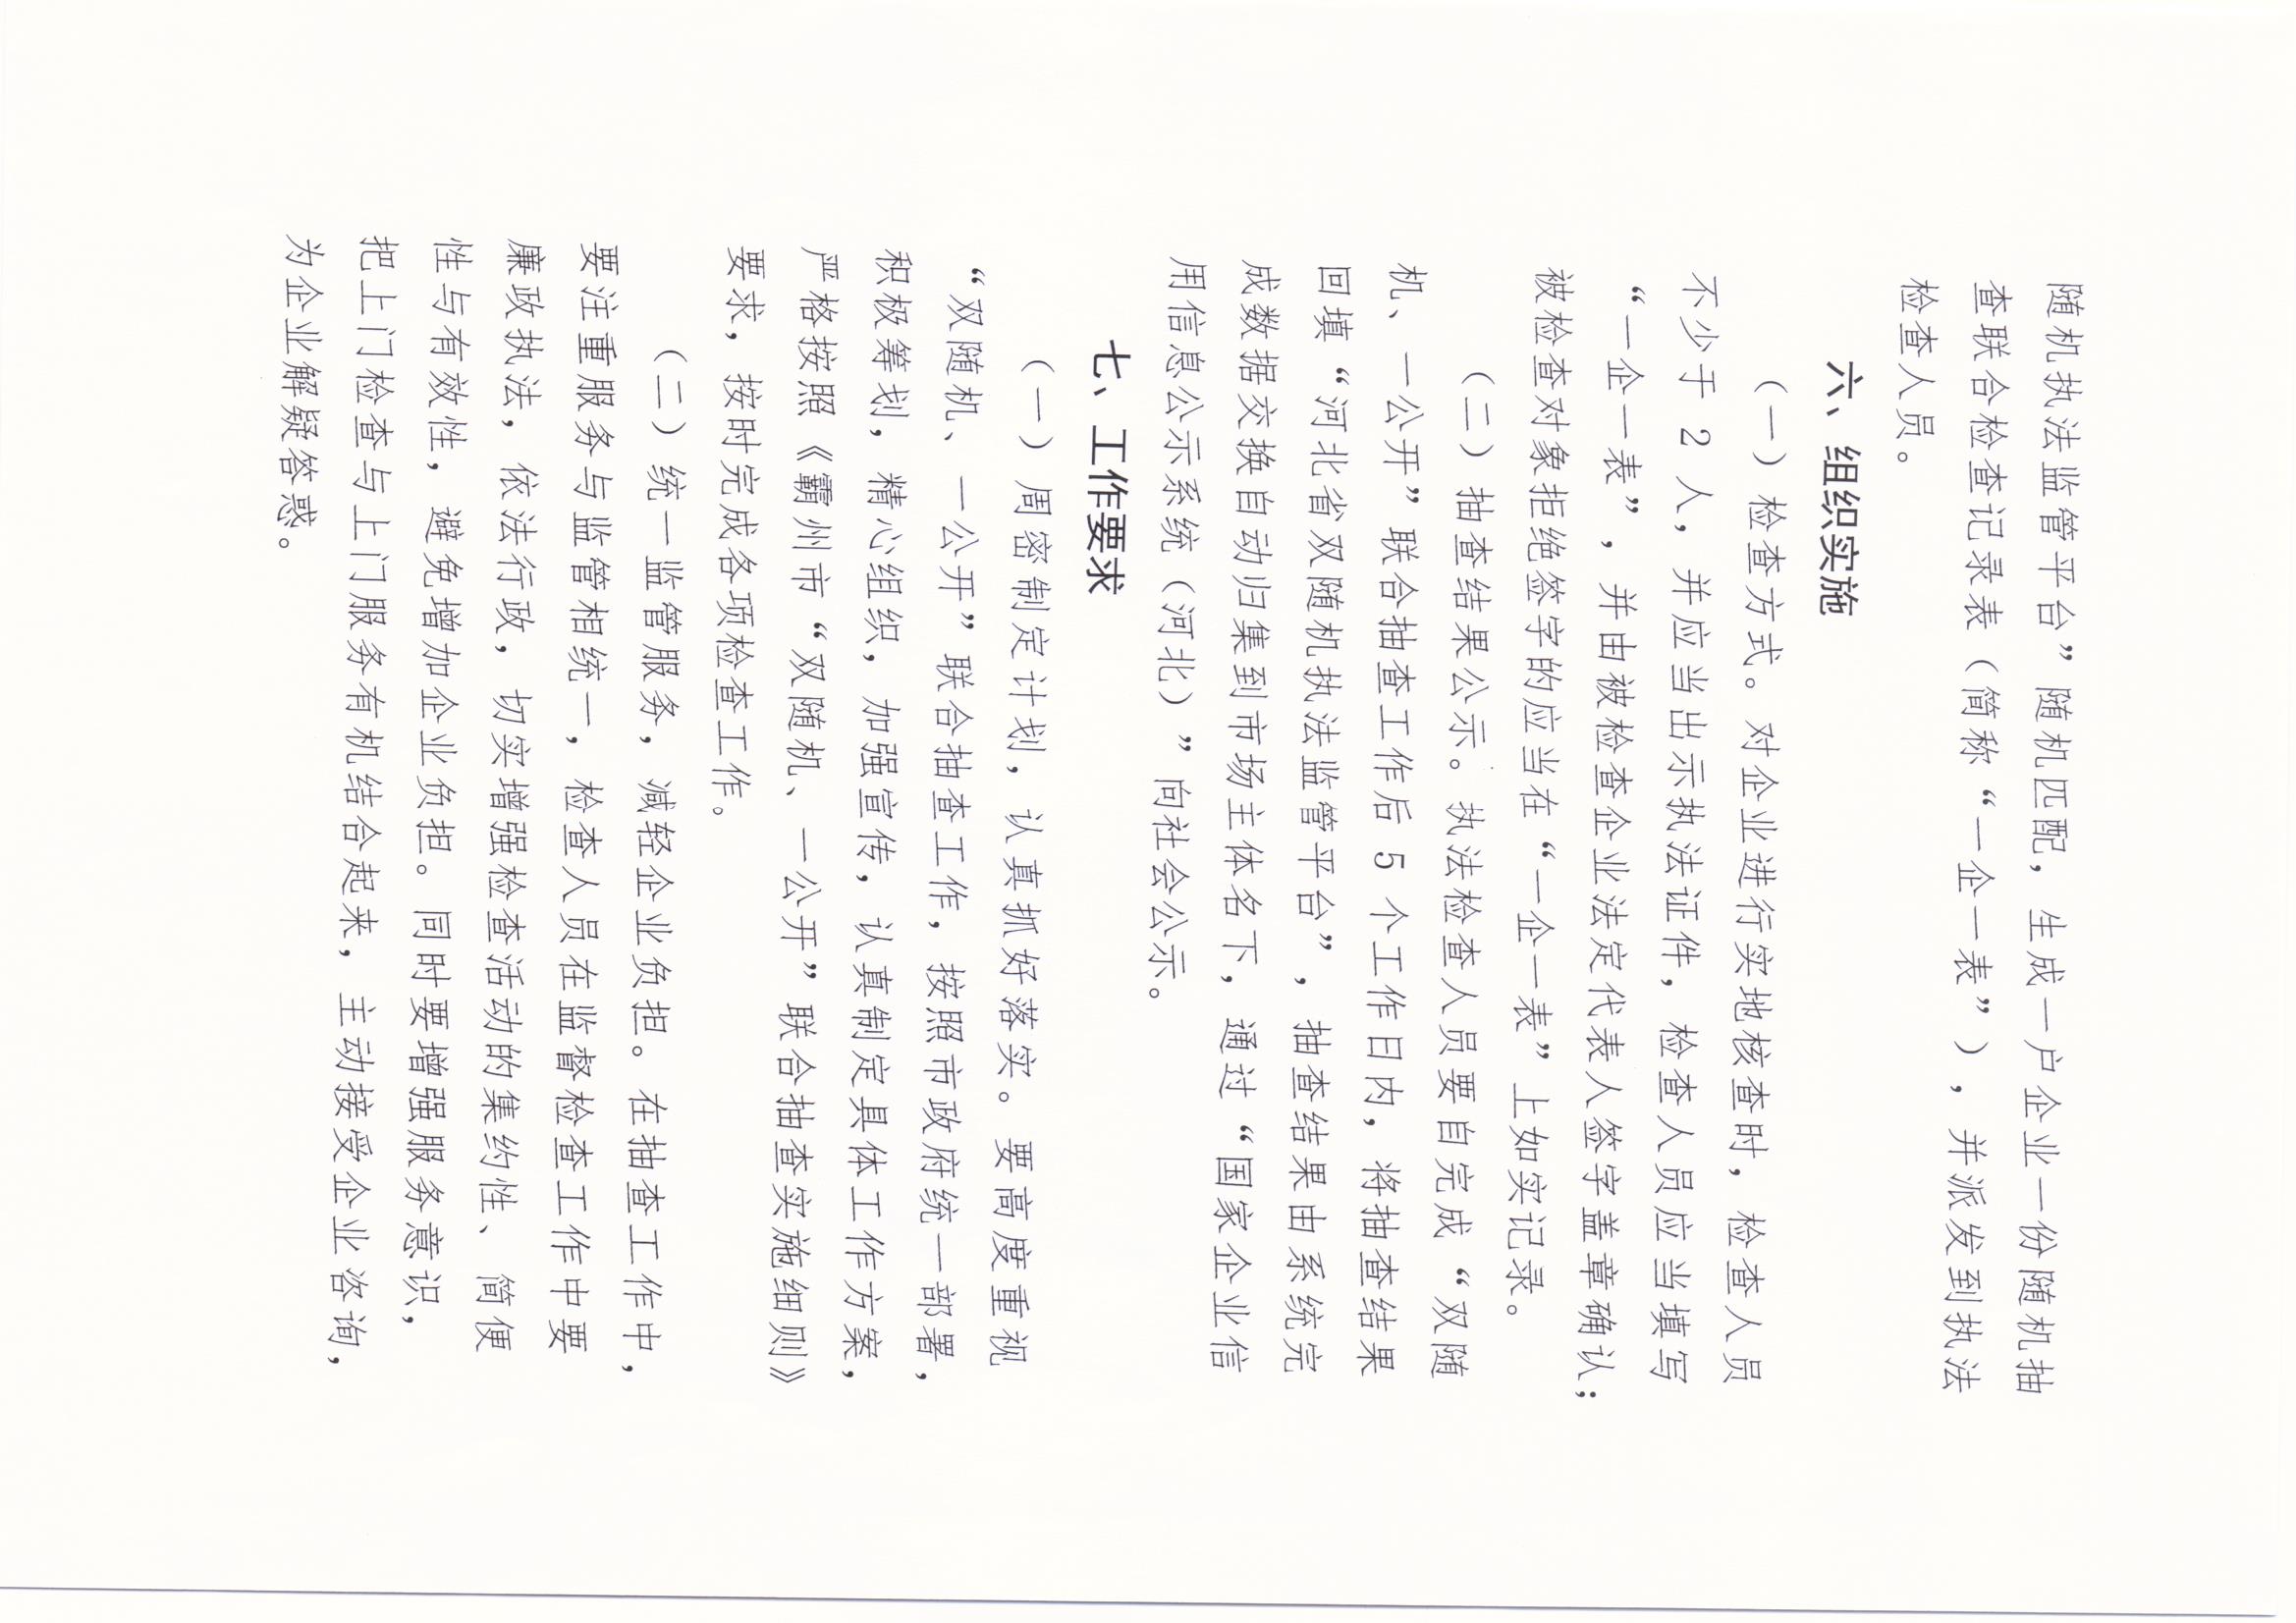 随机执法监管平台”随机匹配，生成一户企业一份随机抽
查联合检查记录表（简称“一企一表”），并派发到执法
检查人员。
六、组织实施
（一）检查方式。对企业进行实地核查时，检查人员
不少于 2 人，并应当出示执法证件，检查人员应当填写
“一企一表”，并由被检查企业法定代表人签字盖章确认；
被检查对象拒绝签字的应当在“一企一表”上如实记录。
（二）抽查结果公示。执法检查人员要自完成“双随
机、一公开”联合抽查工作后 5 个工作日内，将抽查结果
回填“河北省双随机执法监管平台”，抽查结果由系统完
成数据交换自动归集到市场主体名下，通过“国家企业信
用信息公示系统（河北）”向社会公示。
七、工作要求
（一）周密制定计划，认真抓好落实。要高度重视
“双随机、一公开”联合抽查工作，按照市政府统一部署，
积极筹划，精心组织，加强宣传，认真制定具体工作方案，
严格按照《霸州市“双随机、一公开”联合抽查实施细则》
要求，按时完成各项检查工作。
（二）统一监管服务，减轻企业负担。在抽查工作中，
要注重服务与监管相统一，检查人员在监督检查工作中要
廉政执法，依法行政，切实增强检查活动的集约性、简便
性与有效性，避免增加企业负担。同时要增强服务意识，
把上门检查与上门服务有机结合起来，主动接受企业咨询，
为企业解疑答惑。